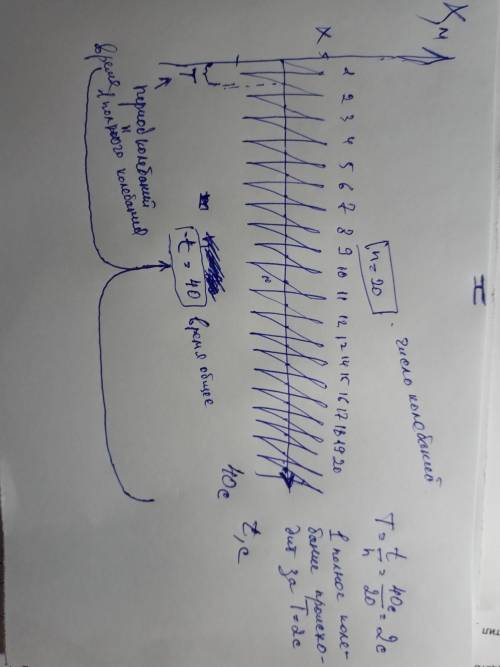 X, м
X
1 2 3 4 5 6 7 8 9 10 11 12 13 14 15 16 17 18 19 20
n = 20 - число колебаний
40 с
t, с
T
t = 40 время общее
период колебаний
и
время 1 полного колебания
T = t/n = 40с/20 = 2с
1 полное коле-
бание происхо-
дит за T = 2с